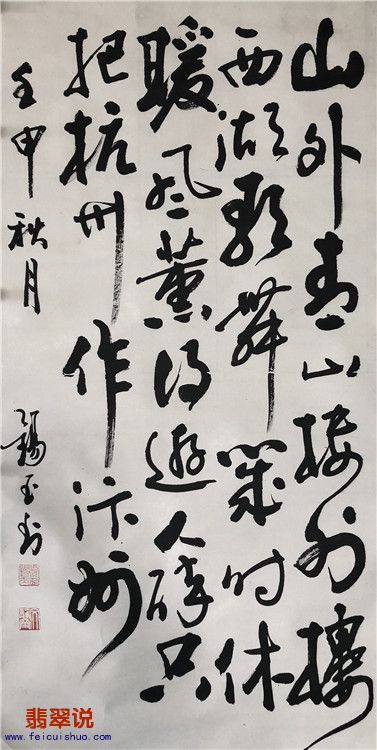 山外青山樓外樓
西湖歌舞幾时休
暖风薰得遊人醉只
把杭州作汴州
壬申秋月
翡翠说
www.feicuishuo.com